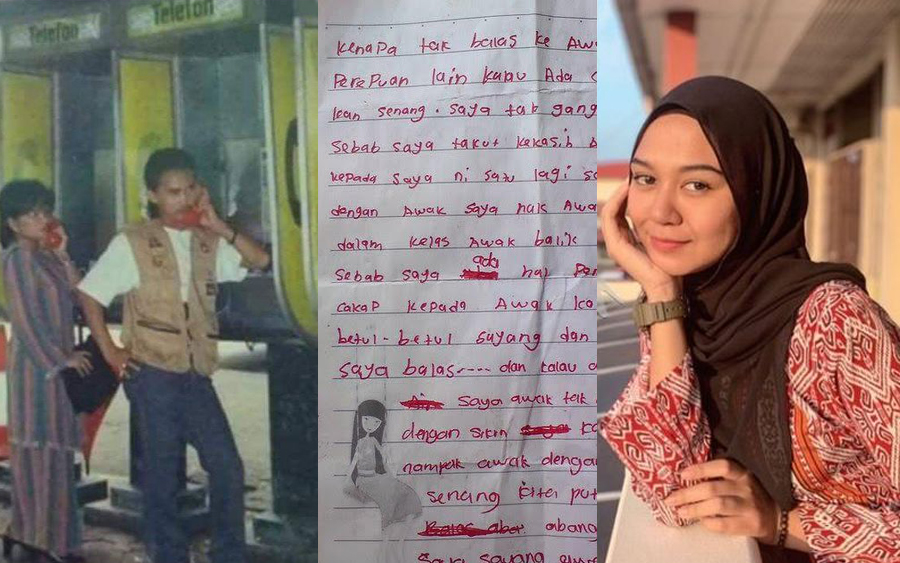 Telefon
Telefon
Kenapa tak balas ke Awa
Perepuan lain kapu Ada
kan senang. saya tak gang
sebab saya takut kekasih b
kepada saya ni satu lagi sa
dengan Awak saya nak Awa
dalam kelas Awak balik
ada
Sebab saya hal Per
cakap kepada Awak ka
betul-betul sayang dan
saya balas---- dan kalau a
saya awak tak
dengan sikin ka
nampak awak dengan
senang kita put
Balas abar abang
sayang